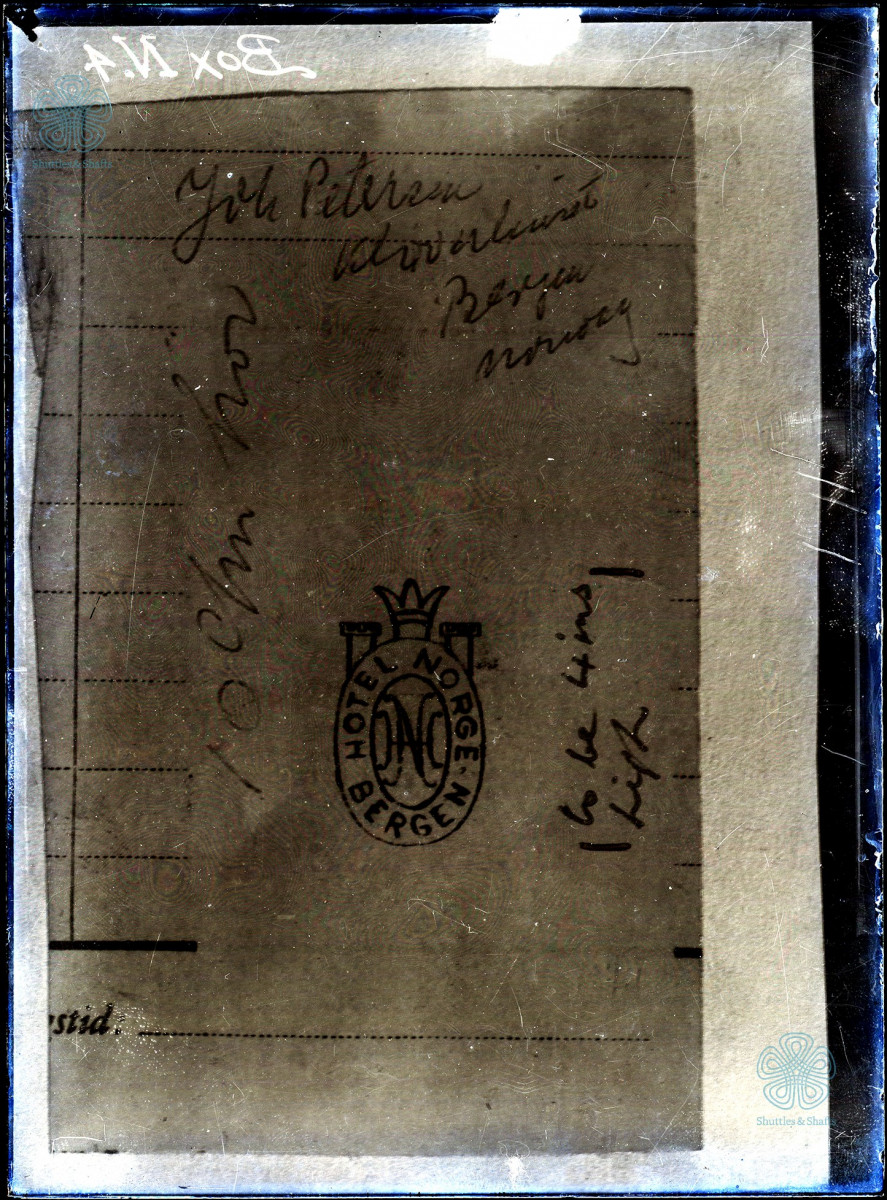 Box N.4
Shuttles & Shafts
Joh Petersen
Bergen
Norway
10 Cm
HOTEL NORGE·
BERGEN
N
to be 4 ins
high
stid:
Shuttles & Shafts